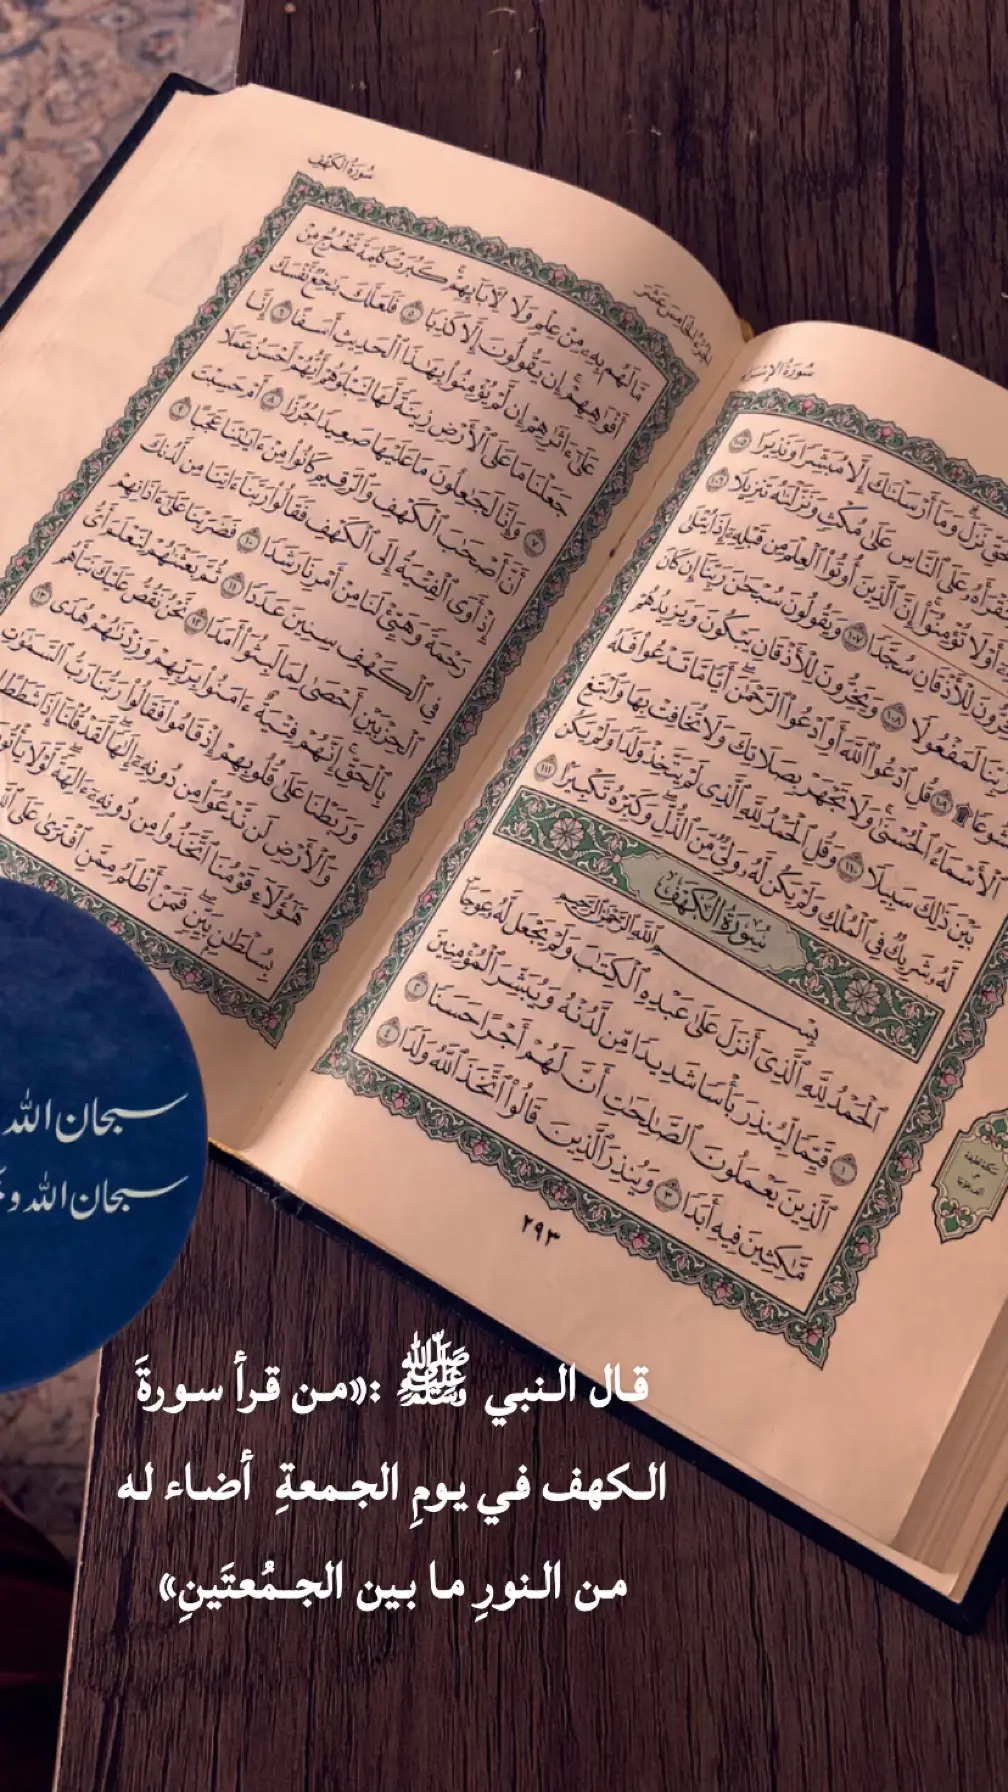 سُورَةُ الإِسْرَاءِ
حَقِّ نَزَلَ وَمَآ أَرْسَلْنَٰكَ إِلَّا مُبَشِّرًا وَنَذِيرًا ١٠٥
عَلَى ٱلنَّاسِ عَلَىٰ مُكْثٍ وَنَزَّلْنَٰهُ تَنزِيلًا ١٠٦
أَوْ لَا تُؤْمِنُوٓا۟ إِنَّ ٱلَّذِينَ أُوتُوا۟ ٱلْعِلْمَ مِن قَبْلِهِۦٓ إِذَا يُتْلَىٰ
لِلْأَذْقَانِ سُجَّدًا ١٠٧ وَيَقُولُونَ سُبْحَٰنَ رَبِّنَآ إِن كَانَ
رَبِّنَا لَمَفْعُولًا ١٠٨ وَيَخِرُّونَ لِلْأَذْقَانِ يَبْكُونَ وَيَزِيدُهُمْ
١٠٩ قُلِ ٱدْعُوا۟ ٱللَّهَ أَوِ ٱدْعُوا۟ ٱلرَّحْمَٰنَ أَيًّا مَّا تَدْعُوا۟ فَلَهُ
ٱلْأَسْمَآءُ ٱلْحُسْنَىٰ وَلَا تَجْهَرْ بِصَلَاتِكَ وَلَا تُخَافِتْ بِهَا وَٱبْتَغِ
بَيْنَ ذَٰلِكَ سَبِيلًا ١١٠ وَقُلِ ٱلْحَمْدُ لِلَّهِ ٱلَّذِى لَمْ يَتَّخِذْ وَلَدًا وَلَمْ يَكُن
لَّهُۥ شَرِيكٌ فِى ٱلْمُلْكِ وَلَمْ يَكُن لَّهُۥ وَلِىٌّ مِّنَ ٱلذُّلِّ وَكَبِّرْهُ تَكْبِيرًۢا ١١١
سُورَةُ الكَهْفِ
بِسْمِ ٱللَّهِ ٱلرَّحْمَٰنِ ٱلرَّحِيمِ
ٱلْحَمْدُ لِلَّهِ ٱلَّذِىٓ أَنزَلَ عَلَىٰ عَبْدِهِ ٱلْكِتَٰبَ وَلَمْ يَجْعَل لَّهُۥ عِوَجَاۜ
١ قَيِّمًا لِّيُنذِرَ بَأْسًا شَدِيدًا مِّن لَّدُنْهُ وَيُبَشِّرَ ٱلْمُؤْمِنِينَ
ٱلَّذِينَ يَعْمَلُونَ ٱلصَّٰلِحَٰتِ أَنَّ لَهُمْ أَجْرًا حَسَنًا ٢
مَّٰكِثِينَ فِيهِ أَبَدًا ٣ وَيُنذِرَ ٱلَّذِينَ قَالُوا۟ ٱتَّخَذَ ٱللَّهُ وَلَدًا ٤
٢٩٣
الجزء الخامس عشر
سُورَةُ الكَهْفِ
مَّا لَهُم بِهِۦ مِنْ عِلْمٍ وَلَا لِـَٔابَآئِهِمْ كَبُرَتْ كَلِمَةً تَخْرُجُ مِنْ
أَفْوَٰهِهِمْ إِن يَقُولُونَ إِلَّا كَذِبًا ٥ فَلَعَلَّكَ بَٰخِعٌ نَّفْسَكَ
عَلَىٰٓ ءَاثَٰرِهِمْ إِن لَّمْ يُؤْمِنُوا۟ بِهَٰذَا ٱلْحَدِيثِ أَسَفًا ٦ إِنَّا
جَعَلْنَا مَا عَلَى ٱلْأَرْضِ زِينَةً لَّهَا لِنَبْلُوَهُمْ أَيُّهُمْ أَحْسَنُ عَمَلًا
٧ وَإِنَّا لَجَٰعِلُونَ مَا عَلَيْهَا صَعِيدًا جُرُزًا ٨ أَمْ حَسِبْتَ
أَنَّ أَصْحَٰبَ ٱلْكَهْفِ وَٱلرَّقِيمِ كَانُوا۟ مِنْ ءَايَٰتِنَا عَجَبًا ٩
إِذْ أَوَى ٱلْفِتْيَةُ إِلَى ٱلْكَهْفِ فَقَالُوا۟ رَبَّنَآ ءَاتِنَا مِن لَّدُنكَ
رَحْمَةً وَهَيِّئْ لَنَا مِنْ أَمْرِنَا رَشَدًا ١٠ فَضَرَبْنَا عَلَىٰٓ ءَاذَانِهِمْ
فِى ٱلْكَهْفِ سِنِينَ عَدَدًا ١١ ثُمَّ بَعَثْنَٰهُمْ لِنَعْلَمَ أَىُّ
ٱلْحِزْبَيْنِ أَحْصَىٰ لِمَا لَبِثُوٓا۟ أَمَدًا ١٢ نَّحْنُ نَقُصُّ عَلَيْكَ نَبَأَهُم
بِٱلْحَقِّ إِنَّهُمْ فِتْيَةٌ ءَامَنُوا۟ بِرَبِّهِمْ وَزِدْنَٰهُمْ هُدًى ١٣
وَرَبَطْنَا عَلَىٰ قُلُوبِهِمْ إِذْ قَامُوا۟ فَقَالُوا۟ رَبُّنَا رَبُّ ٱلسَّمَٰوَٰتِ
وَٱلْأَرْضِ لَن نَّدْعُوَا۟ مِن دُونِهِۦٓ إِلَٰهًا لَّقَدْ قُلْنَآ إِذًا شَطَطًا
هَٰٓؤُلَآءِ قَوْمُنَا ٱتَّخَذُوا۟ مِن دُونِهِۦٓ ءَالِهَةً لَّوْلَا يَأْتُو
بِسُلْطَٰنٍۭ بَيِّنٍ فَمَنْ أَظْلَمُ مِمَّنِ ٱفْتَرَىٰ عَلَى
سبحان الله
سبحان الله و
قال النبي ﷺ :«من قرأ سورةَ
الكهف في يومِ الجمعةِ أضاء له
من النورِ ما بين الجمُعتَينِ»